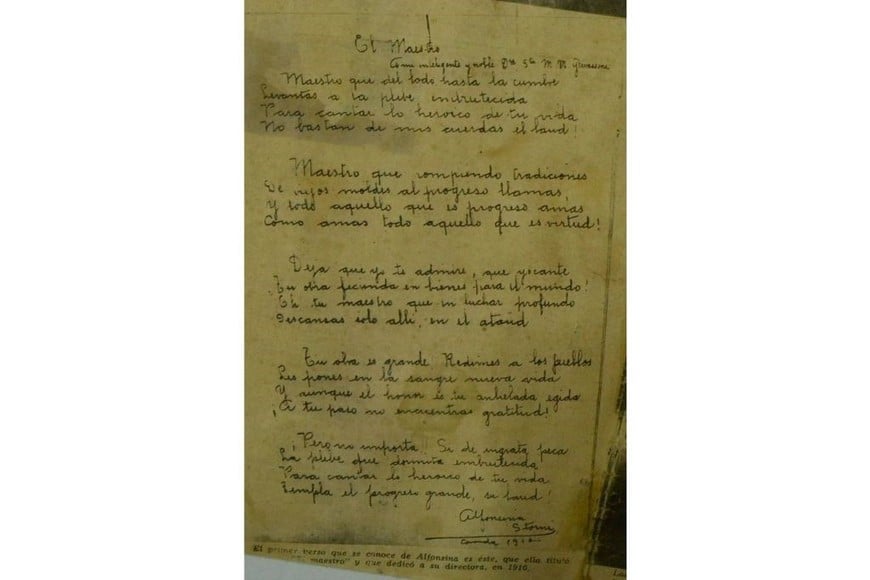 El Maestro
A mi inteligente y noble
Maestro que del lodo hasta la cumbre
Levantas a la plebe embrutecida
Para cantar lo heroico de tu vida
No bastan de mis cuerdas el laud!
Maestro que rompiendo tradiciones
De viejos moldes al progreso llamas,
Y todo aquello que es progreso amas
Como amas todo aquello que es virtud!
Deja que yo te admire, que yo cante
Tu obra fecunda en bienes para el mundo!
Oh tu maestro que en luchar profundo
Descansas solo allí, en el ataud
Tu obra es grande Redimes a los pueblos
Les pones en la sangre nueva vida
Y aunque el honor es tu anhelada egida
¡A tu paso no encuentras gratitud!
¡Pero no importa Si de ingrata peca
La plebe que dormita embrutecida
Para cantar lo heroico de tu vida
Templa el progreso grande, su laud!
Alfonsina
Storni
Coronda 1910
El primer verso que se conoce de Alfonsina es éste, que ella tituló
maestro" y que dedicó a su directora, en 1910.